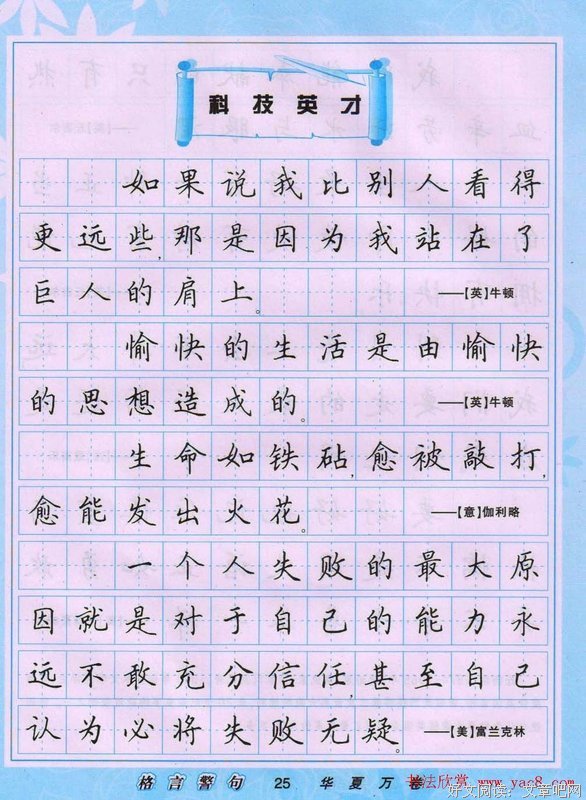 科技英才
如果说我比别人看得
更远些,那是因为我站在了
巨人的肩上。 ——【英】牛顿
愉快的生活是由愉快
的思想造成的。 ——【英】牛顿
生命如铁砧,愈被敲打,
愈能发出火花。 ——【意】伽利略
一个人失败的最大原
因就是对于自己的能力永
远不敢充分信任,甚至自己
认为必将失败无疑。 ——【美】富兰克林
格言警句 25 华夏万卷
书法欣赏 www.yac8.com
好文阅读:文章吧网